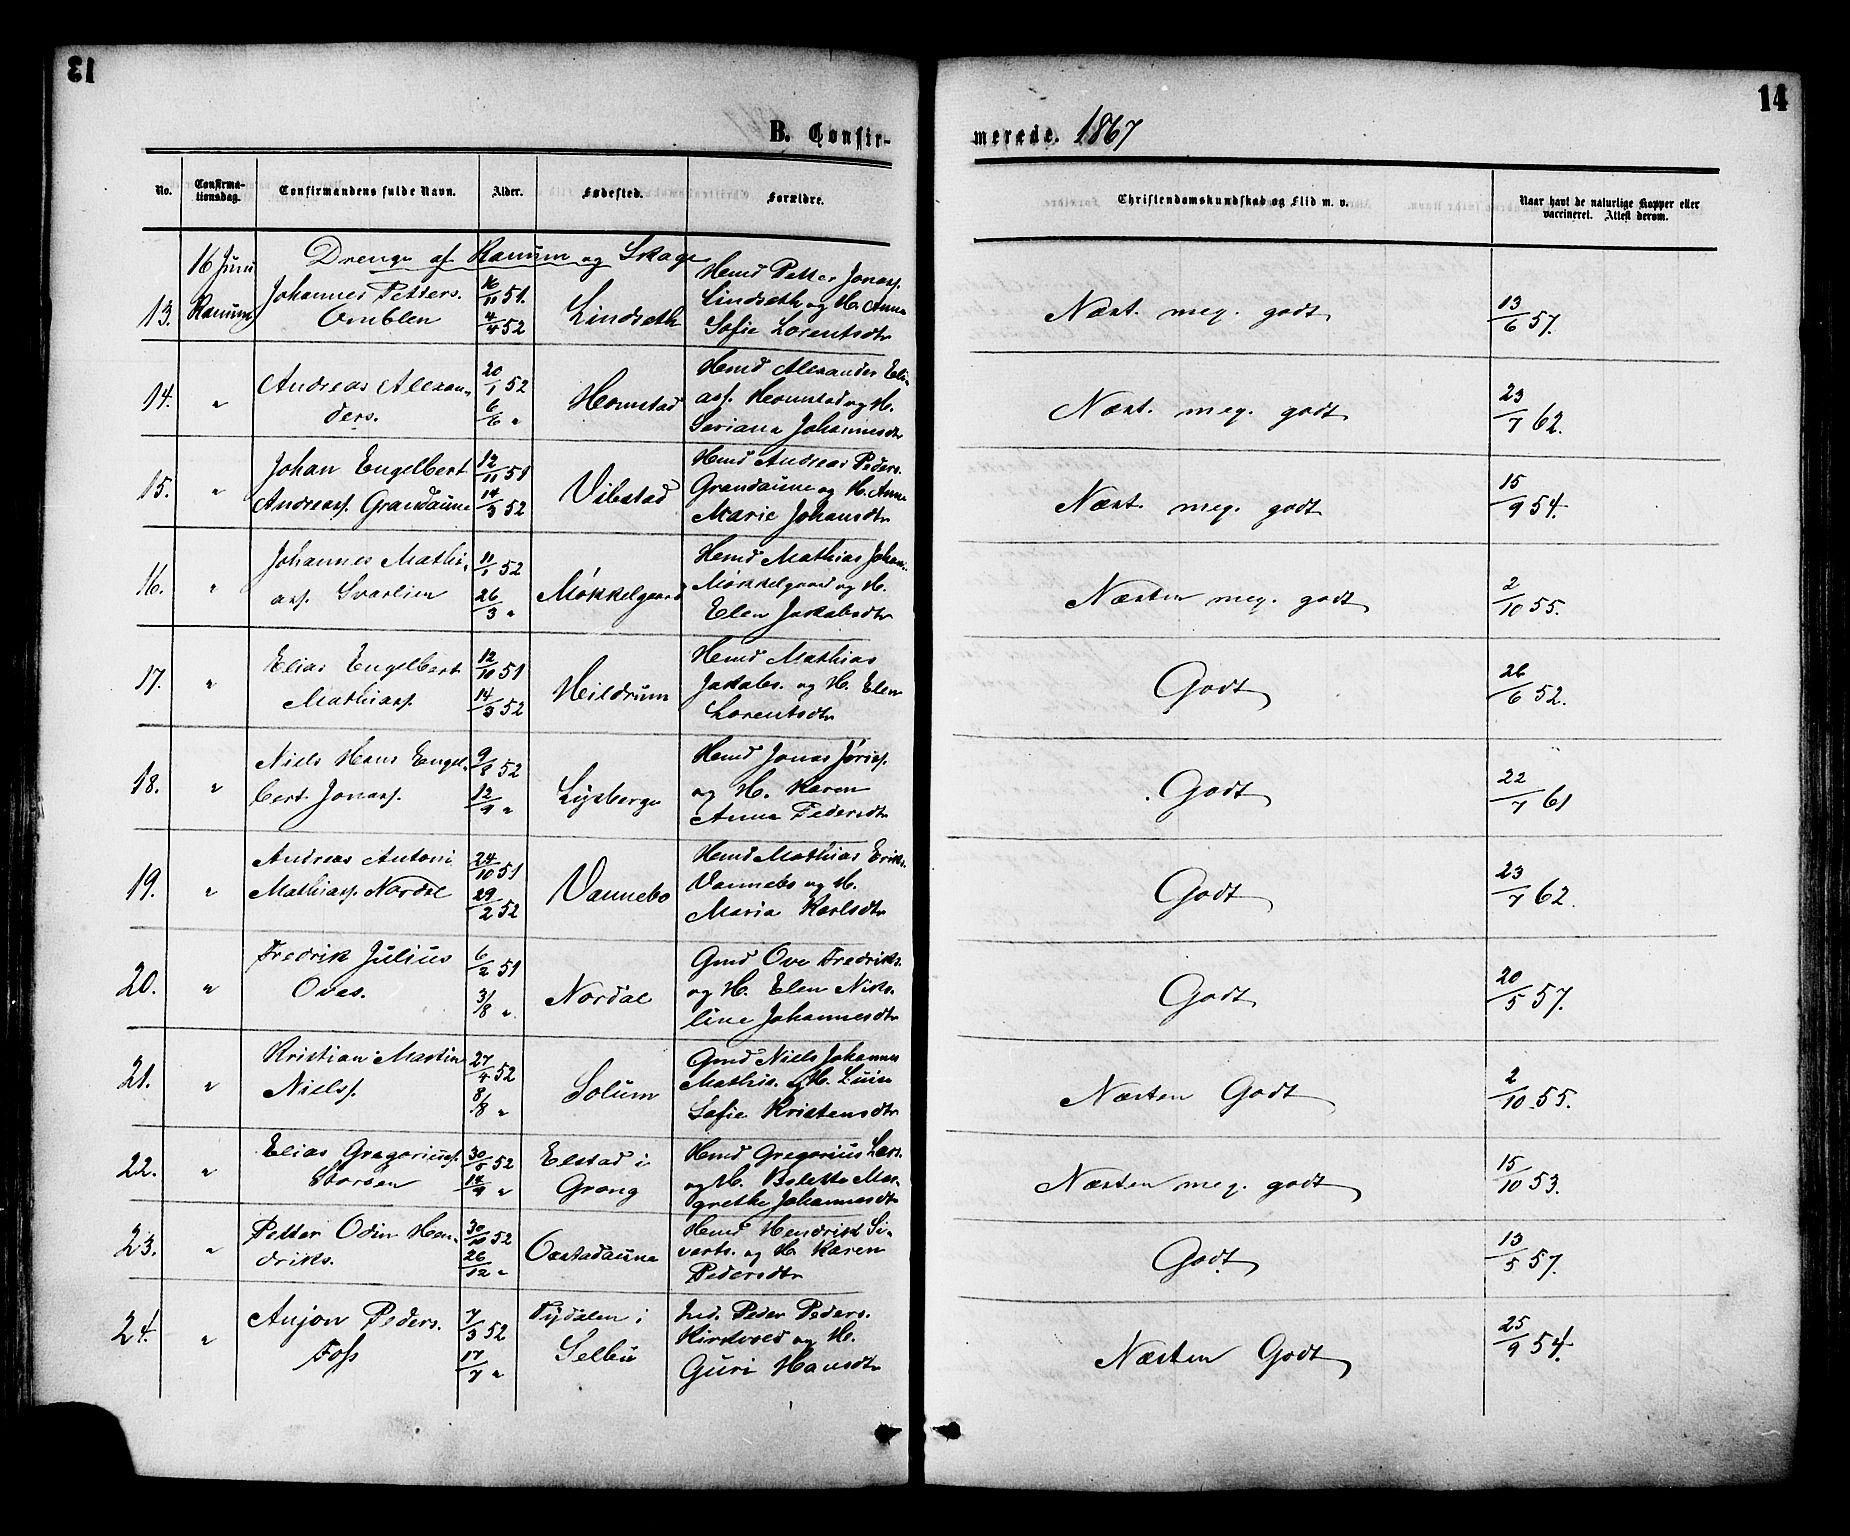 13
14
B. Confir-
merede. 1867
No. Confirma-tionsdag. Confirmandens fulde Navn. Alder. Fødested. Forældre. Christendomskundskab og Flid m. v. Naar havt de naturlige Kopper eller vaccineret. Attest derom.
16 Juni Drenge af Ranum og Skage
13. Ranum Johannes Petters. Omblen 16/11 51. 4/4 52 Lindseth Hmd Petter Jonass. Lindseth og H. Anna Sofie Lorentsdtr Næst. meg. godt 13/6 57.
14. " Andreas Alexanders. 20/1 52 6/6 " Homstad Hmd Alexander Eliass. Homstad og H. Seriana Johannesdtr Næst. meg. godt 23/7 62.
15. " Johan Engelbert Andreass. Grandaune 12/11 51 14/3 52 Vibstad Hmd Andreas Peders. Grandaune og H. Anna Marie Johansdtr Næst. meg. godt 15/9 54.
16. " Johannes Mathiass. Svarlien 11/1 52 26/3 " Møkkelgaard Hmd Mathias Johans. Møkkelgaard og H. Elen Jakobsdtr Næsten meg. godt 2/10 55.
17. " Elias Engelbert Mathiass. 12/10 51 14/3 52 Hildrum Hmd Mathias Jakobs. og H. Elen Lorentsdtr Godt 26/6 52.
18. " Niels Hans Engelbert Jonass. 9/8 52 12/9 " Lysberg Hmd Jonas Jøriss. og H. Karen Anna Pedersdtr Godt 22/7 61
19. " Andreas Antoni Mathiass. Nordal 24/10 51 29/2 52 Vannebo Hmd Mathias Eriks. Vannebo og H. Maria Karlsdtr Godt 23/7 62.
20. " Fredrik Julius Oves. 6/2 51 3/8 " Nordal Gmd Ove Fredriks. og H. Elen Nikoline Johannesdtr Godt 20/5 57.
21. " Kristian Martin Nielss. 27/4 52 8/8 " Solum Gmd Niels Johannes Mathis. og H. Luise Sofie Kristensdtr Næsten Godt 2/10 55.
22. " Elias Gregoriuss. Storøen 30/5 52 14/9 " Elstad i Grong Hmd Gregorius Lars. og H. Beletta Margrethe Johannesdtr Næsten meg. godt 15/10 53.
23. " Petter Odin Hendriks. 30/10 52 26/12 " Oxstadaune Hmd Hendrik Siverts. og H. Karen Pedersdtr Godt 13/5 57.
24. " Anjon Peders. Foss 7/3 52 17/7 " Tydalen i Selbu Ind. Peder Peders. Kirkvold og H. Guri Hansdtr Næsten Godt 25/9 54.